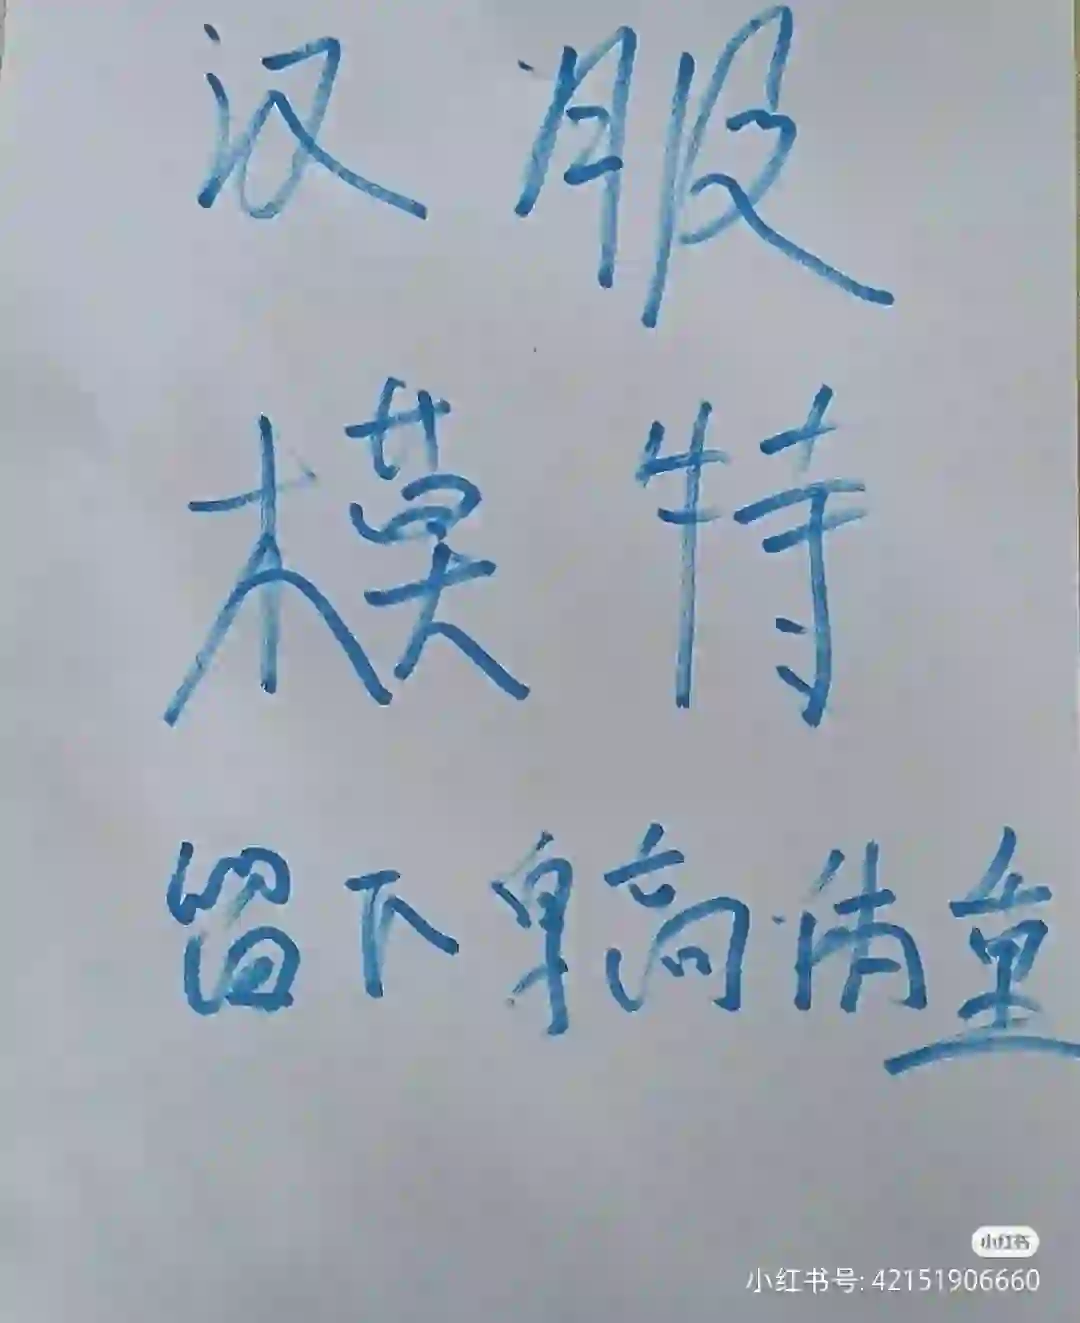 汉服
模特
留下身高体重
小红书
小红书号: 42151906660